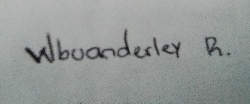 Wbuanderley R.